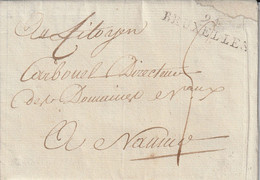 94
BRUXELLES
Au Citoyen
Carbouel Directeur
des Domaines Na&aux
A Namur